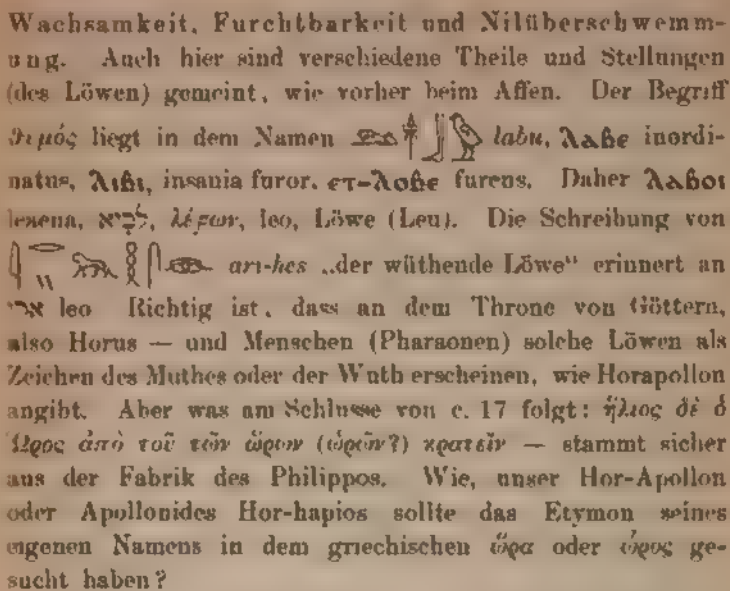 Wachsamkeit, Furchtbarkeit und Nilüberschwemm-
ung. Auch hier sind verschiedene Theile und Stellungen
(des Löwen) gemeint, wie vorher beim Affen. Der Begriff
θιμός liegt in dem Namen labu, λαβε inordi-
natus, λιβι, insania furor, ετ-λοβε furens. Daher λαβοι
leaena, לביא, λέϝων, leo, Löwe (Leu). Die Schreibung von
ari-hes „der wüthende Löwe“ erinnert an
ארי leo Richtig ist, dass an dem Throne von Göttern,
also Horus — und Menschen (Pharaonen) solche Löwen als
Zeichen des Muthes oder der Wuth erscheinen, wie Horapollon
angibt. Aber was am Schlusse von c. 17 folgt: ἥλιος δὲ ὁ
Ὧρος ἀπὸ τοῦ τῶν ὥρων (ὡρῶν?) κρατεῖν — stammt sicher
aus der Fabrik des Philippos. Wie, unser Hor-Apollon
oder Apollonides Hor-hapios sollte das Etymon seines
eigenen Namens in dem griechischen ὥρα oder ὧρος ge-
sucht haben?